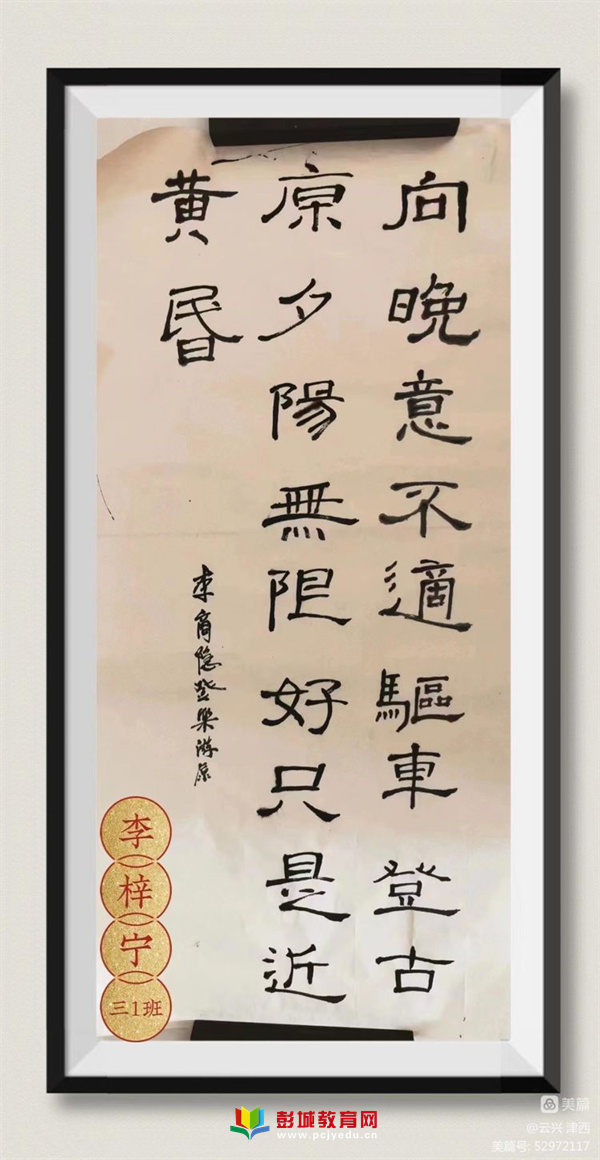 向晚意不適驅車登古
原夕陽無限好只是近
黄昏
李商隐登樂游原
李梓宁
三1班
彭城教育网
www.pcjyedu.cn
美篇
@云兴津西
美篇号: 52972117